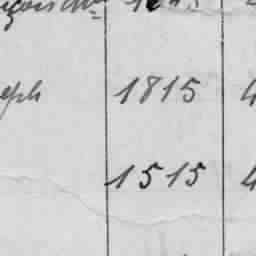 eph 1815 4
1515 4